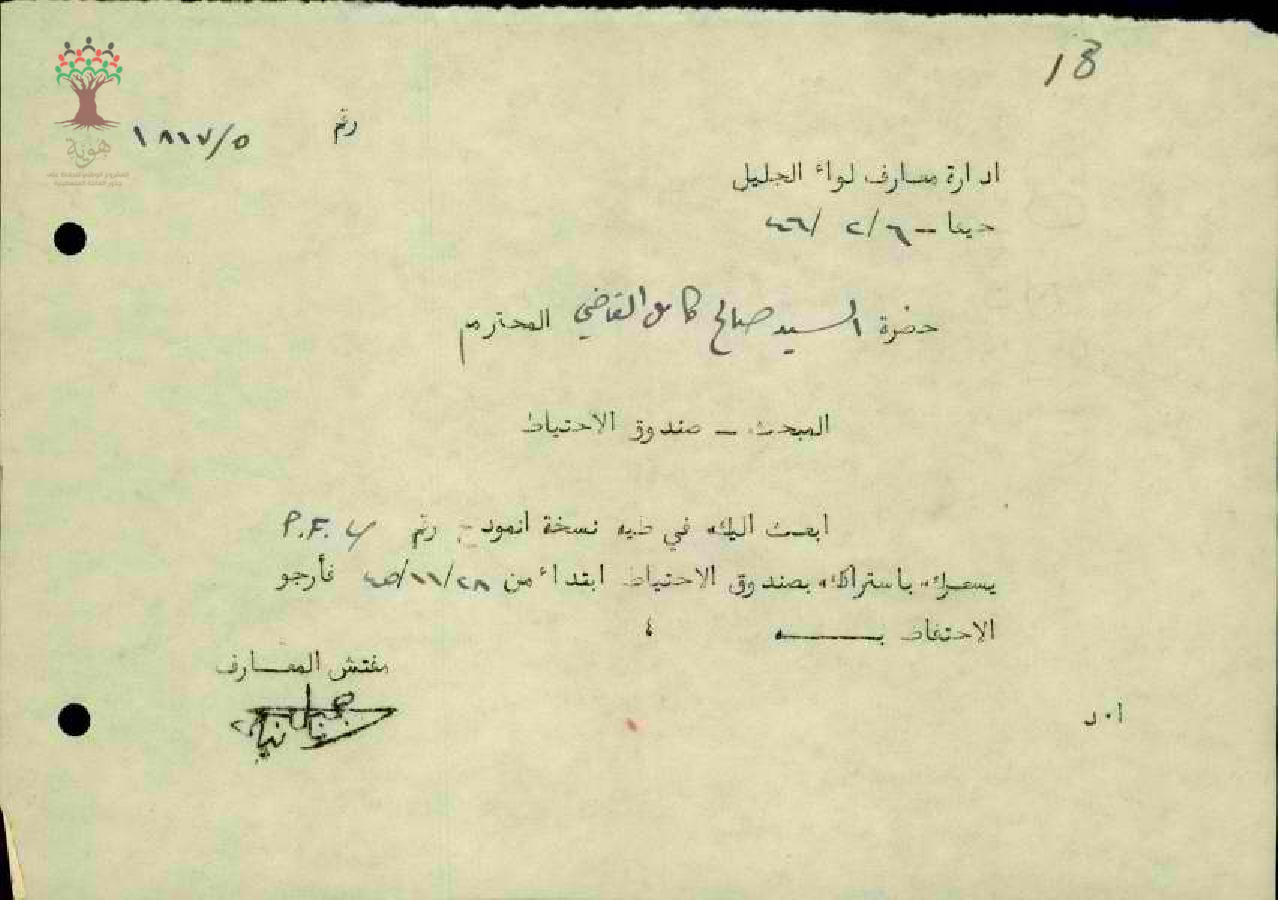 18
رقم ٥/١٨١٧
ادارة معارف لواء الجليل
حيفا - ٦/٢/٤٦
حضرة السيد صالح كامل القاضي المحترم
المبحث - صندوق الاحتياط
ابعث اليك في طيه نسخة انموذج رقم P.F. 4
يسعرك باستراكك بصندوق الاحتياط ابتداء من ٢٨/١١/٤٥ فأرجو
الاحتفاظ بـــه ؛
مفتش المعـارف
ا٠د
هوية